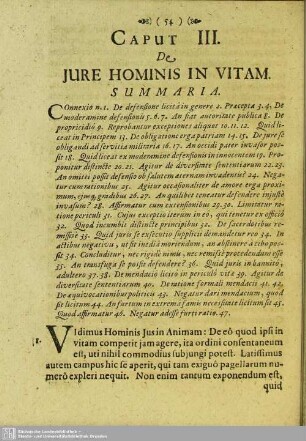 (54)
CAPUT III.
De
JURE HOMINIS IN VITAM.
SUMMARIA.
Connexio n.1. De defensione licitâ in genere 2. Præcepta 3.4. De
moderamine defensionis 5. 6. 7. An fiat autoritate publica 8. De
propricidiô 9. Reprobantur exceptiones aliquot 10. 11. 12. Quid li-
ceat in Principem 13. De obligatione erga patriam 14. 15. De jure se
obligandi ad servitia militaria 16. 17. An occidi pater invasor pos-
sit 18. Quid liceat ex moderamine defensionis in innocentem 19. Pro-
ponitur distinctio 20. 21. Agitur de diversitate sententiarum 22. 23.
An omitti possit defensio ob salutem æternam invadentis? 24. Nega-
tur cum rationibus 25. Agitur occasionaliter de amore erga proxi-
mum, ejusq; gradibus 26. 27. An quilibet teneatur defendere injustè
invasum? 28. Affirmatur cum extensionibus 29. 30. Limitatur ra-
tione periculi 31. Cujus exceptio iterum in eô, qui tenetur ex officiô
32. Quod jucumbit distinctè principibus 34. De sacerdotibus re-
missivè 35. Quid juris in
actibus negativus, ut sit in
sit 36. Concluditur, nec rigidè nimis, nec remissè procedendum esse
35. An transfuga se possit defendere? 36. Quid juris in bannito,
adultero 37. 38. De mendaciô licitô in periculô vitæ 39. Agitur de
diversitate sententiarum 40. De ratione formali mendacii 41. 42.
De æquivocationibus politicis 43. Negatur dari mendacium, quod
sit licitum 44. An furtum in extrema famis necessitate licitum sit 45.
Quod affirmatur 46. Negatur adesse furti ratio. 47.
1. VIdimus Hominis Jus in Animam: De eô quod ipsi in
vitam competit jam agere, ita ordini consentaneum
est, uti nihil commodius subjungi potest. Latissimus
autem campus hic se aperit, qui tam exiguô pagellarum nu-
merô expleri nequit. Non enim tantum exponendum est,
quid